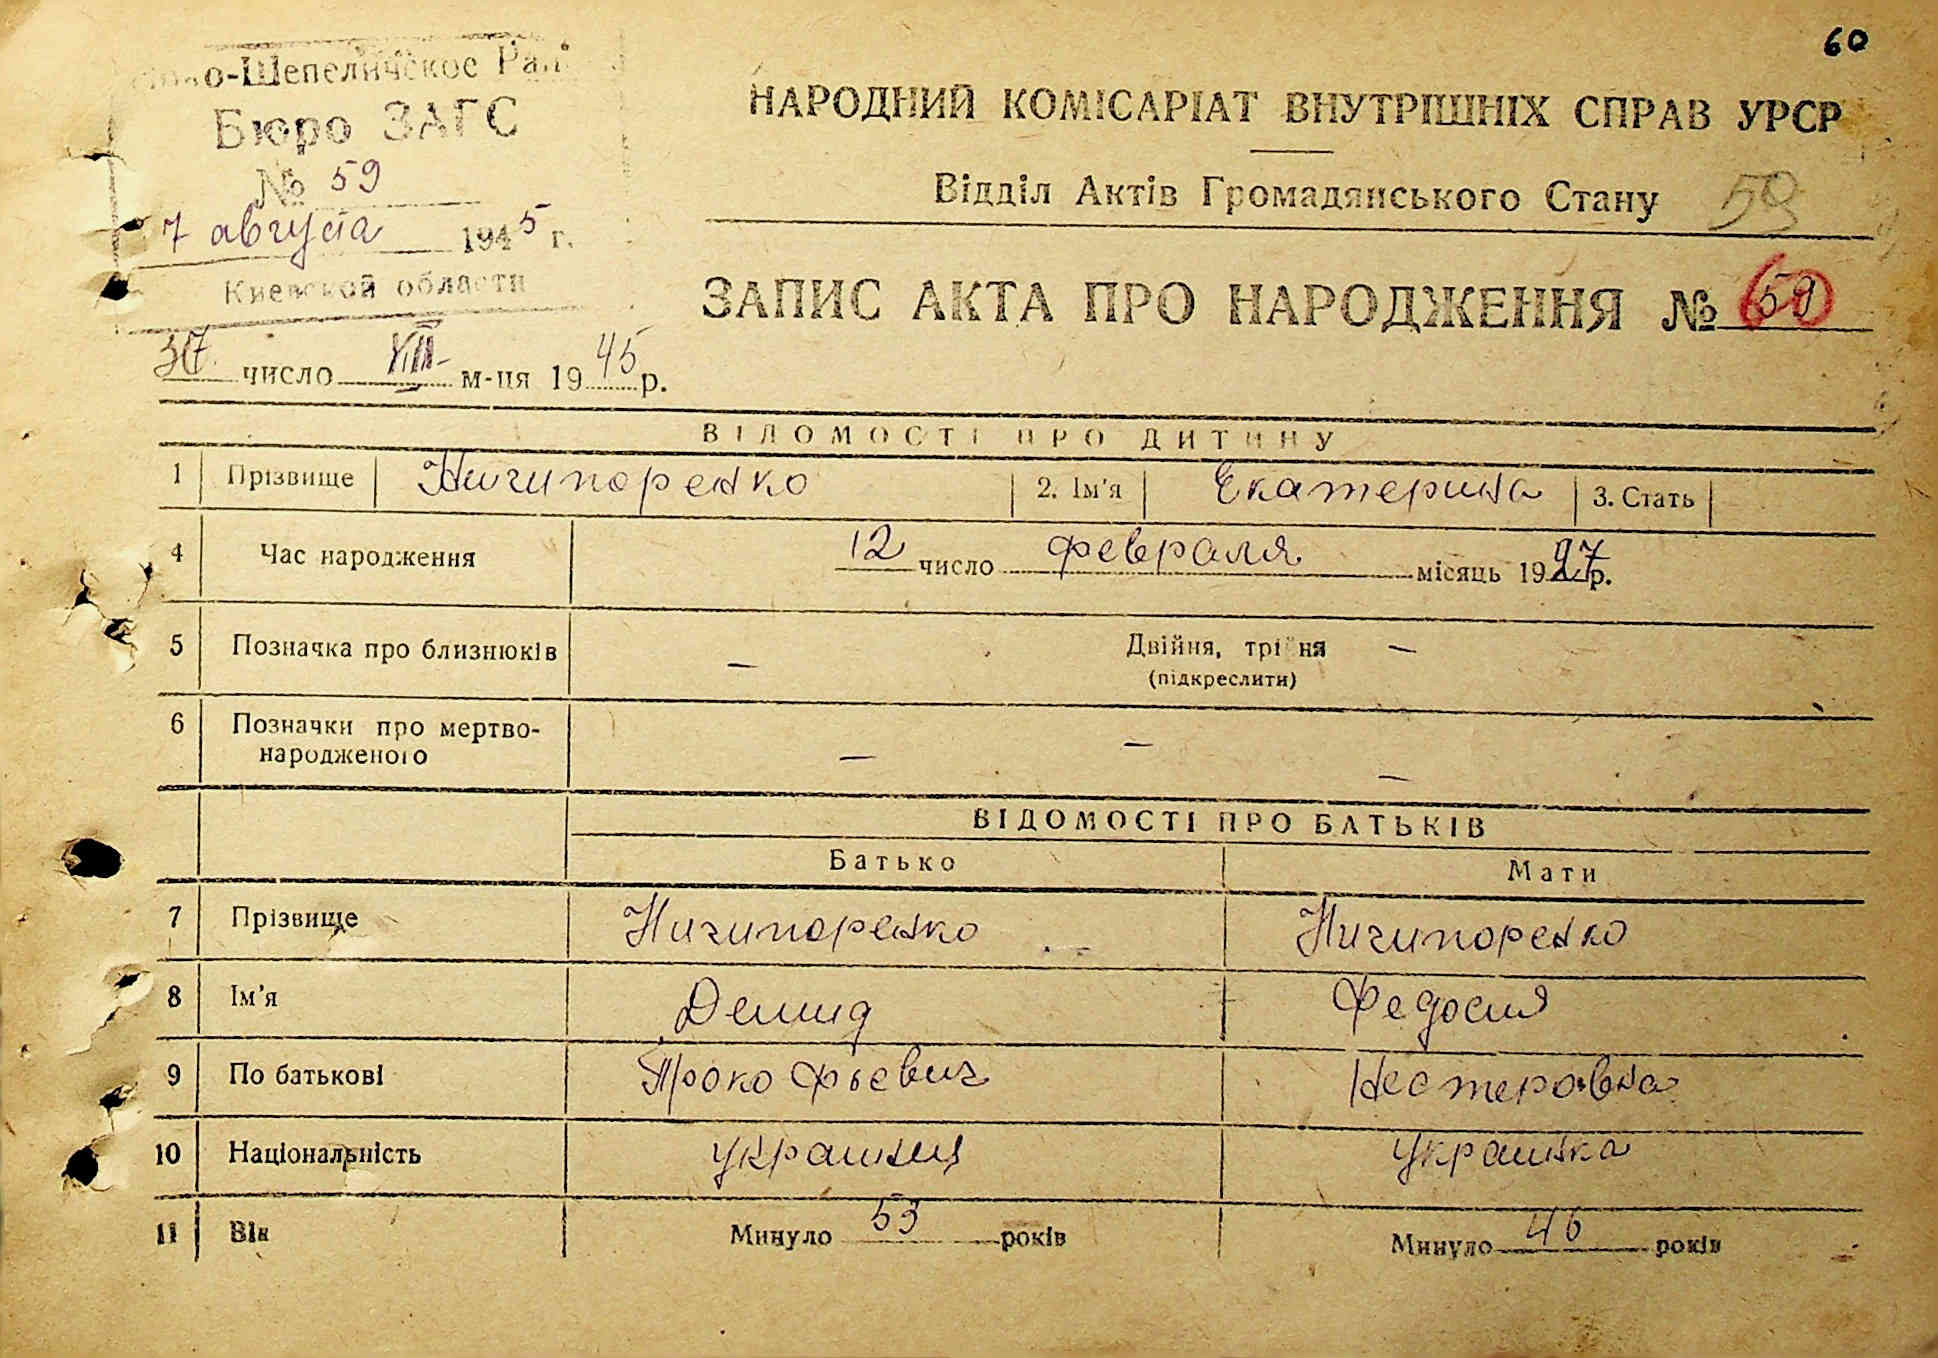 60
о-Шепеличское Рай
Бюро ЗАГС
№ 59
7 августа 1945 г.
Киевской области
НАРОДНИЙ КОМІСАРІАТ ВНУТРІШНІХ СПРАВ УРСР
Відділ Актів Громадянського Стану 59
ЗАПИС АКТА ПРО НАРОДЖЕННЯ №
число VIII м-ця 1945 р.
ВІДОМОСТІ ПРО ДИТИНУ
1 Прізвище Ничипоренко 2. Ім'я Екатерина 3. Стать
4 Час народження 12 число февраля місяць 1927 р.
5 Позначка про близнюків — Двійня, трійня —
(підкреслити)
6 Позначки про мертво-
народженого — — —
ВІДОМОСТІ ПРО БАТЬКІВ
Батько Мати
7 Прізвище Ничипоренко Ничипоренко
8 Ім'я Демид Федосия
9 По батькові Прокофьевич Нестеровна
10 Національність украинец украинка
11 Вік Минуло 53 років Минуло 46 років